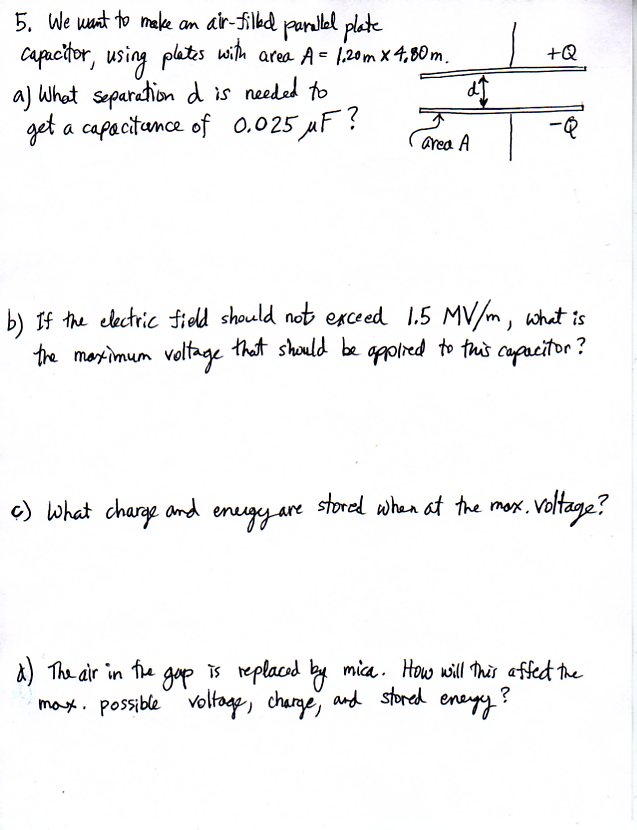 5. We want to make an air-filled parallel plate
capacitor, using plates with area A = 1.20 m x 4.80 m.
+Q
a) What separation d is needed to
d
get a capacitance of 0.025 μF ?
-Q
area A
b) If the electric field should not exceed 1.5 MV/m, what is
the maximum voltage that should be applied to this capacitor?
c) What charge and energy are stored when at the max. voltage?
d) The air in the gap is replaced by mica. How will this affect the
max. possible voltage, charge, and stored energy?